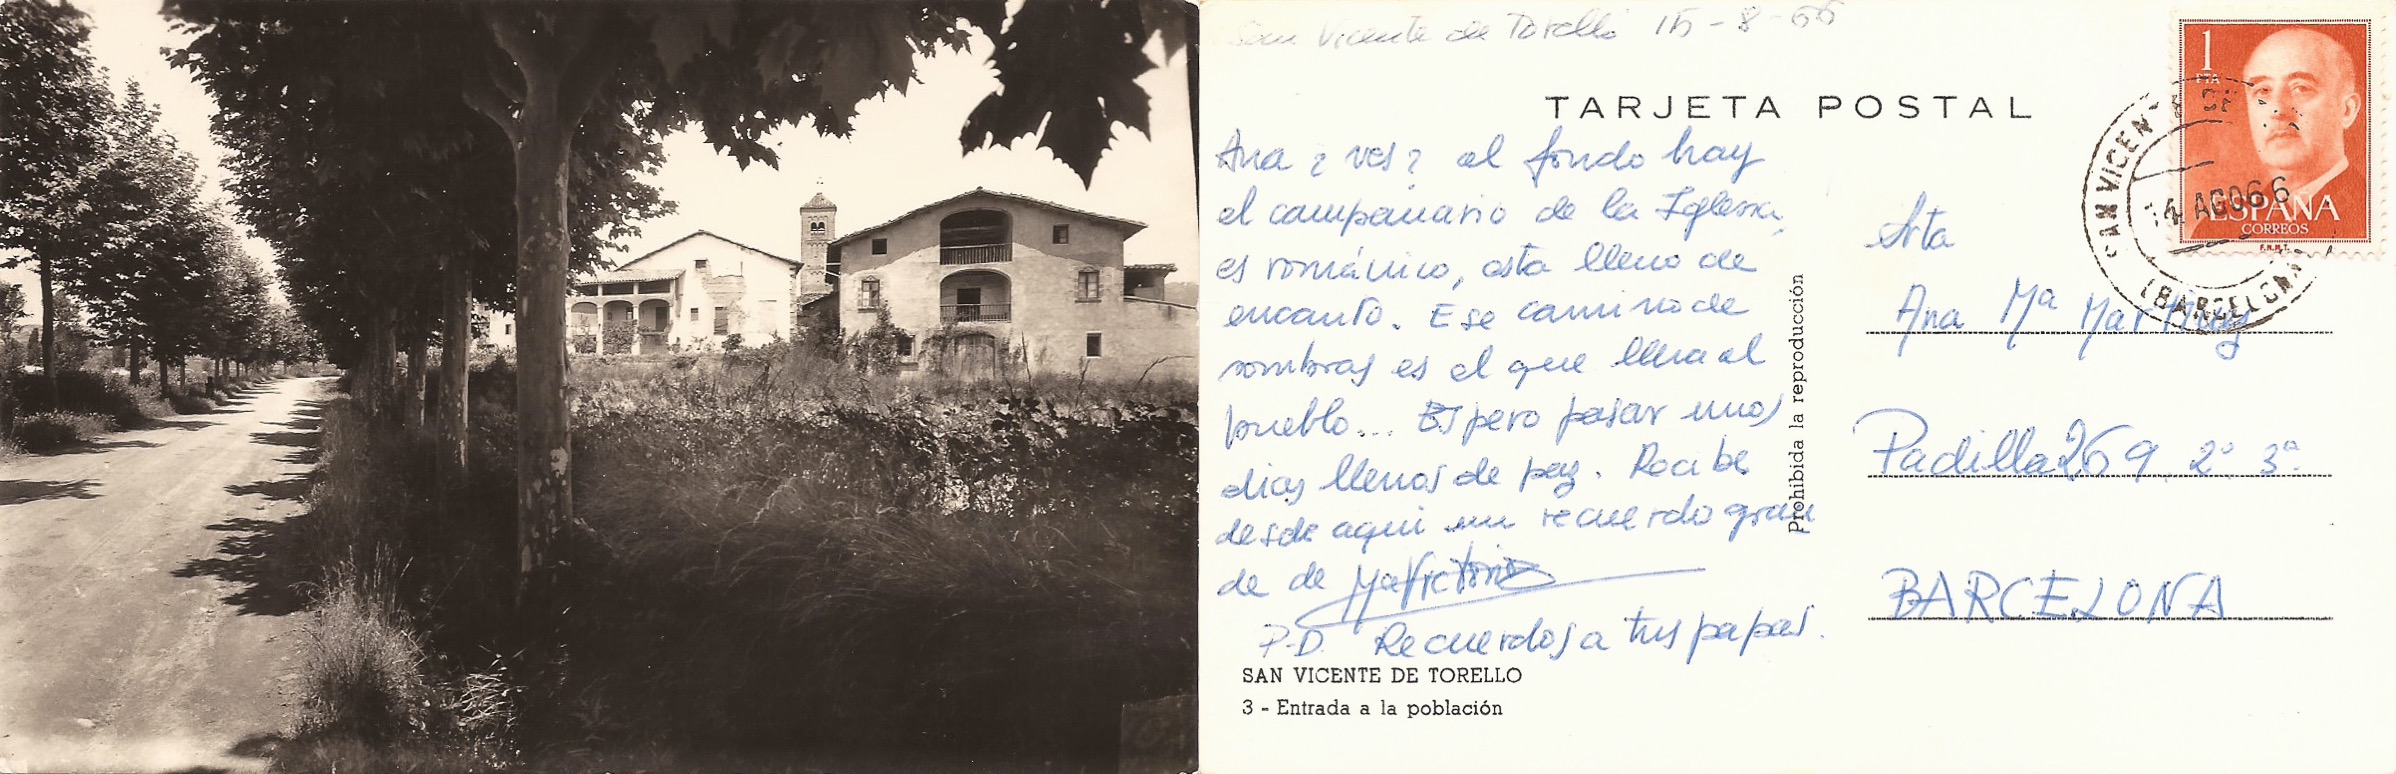 San Vicente de Torelló 15-8-66
TARJETA POSTAL
1
PTA
ESPAÑA
CORREOS
F.N.M.T.
SAN VICENTE DE
14 AGO 66
(BARCELONA)
Ana ¿ves? al fondo hay
el campanario de la Iglesia,
es románico, esta lleno de
encanto. Ese camino de
sombras es el que lleva al
pueblo... Espero pasar unos
dias llenos de paz. Recibe
desde aqui un recuerdo gran
de de Mª Victoria
P.D. Recuerdos a tus papas.
SAN VICENTE DE TORELLO
3 - Entrada a la población
Prohibida la reproducción
Srta
Ana Mª
Padilla 269 2º 3ª
BARCELONA